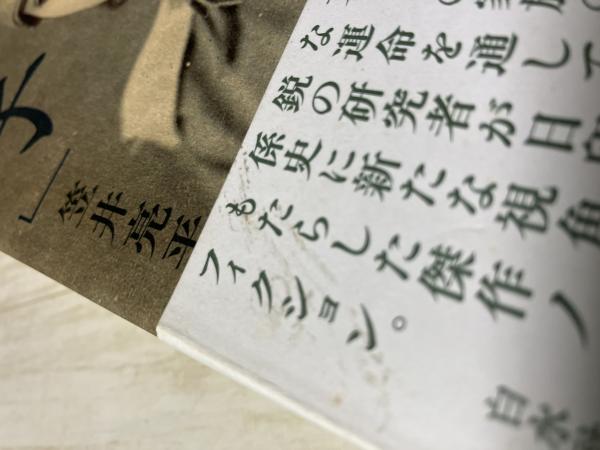 な運命を通して
鋭の研究者が日印
係史に新たな視角
もたらした傑作ノ
フィクション。
白水
子」
笠井亮平